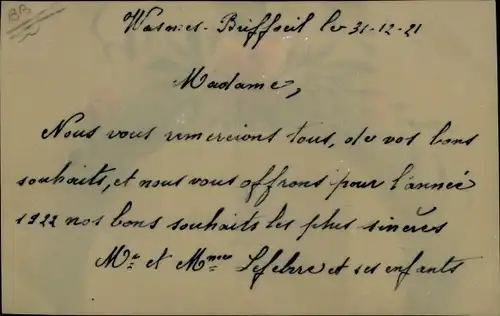 BB
Wasmes-Briffœil le 31-12-21
Madame,
Nous vous remercions tous, de vos bons
souhaits, et nous vous offrons pour l'année
1922 nos bons souhaits les plus sincères
Mr et Mme Lefebre et ses enfants